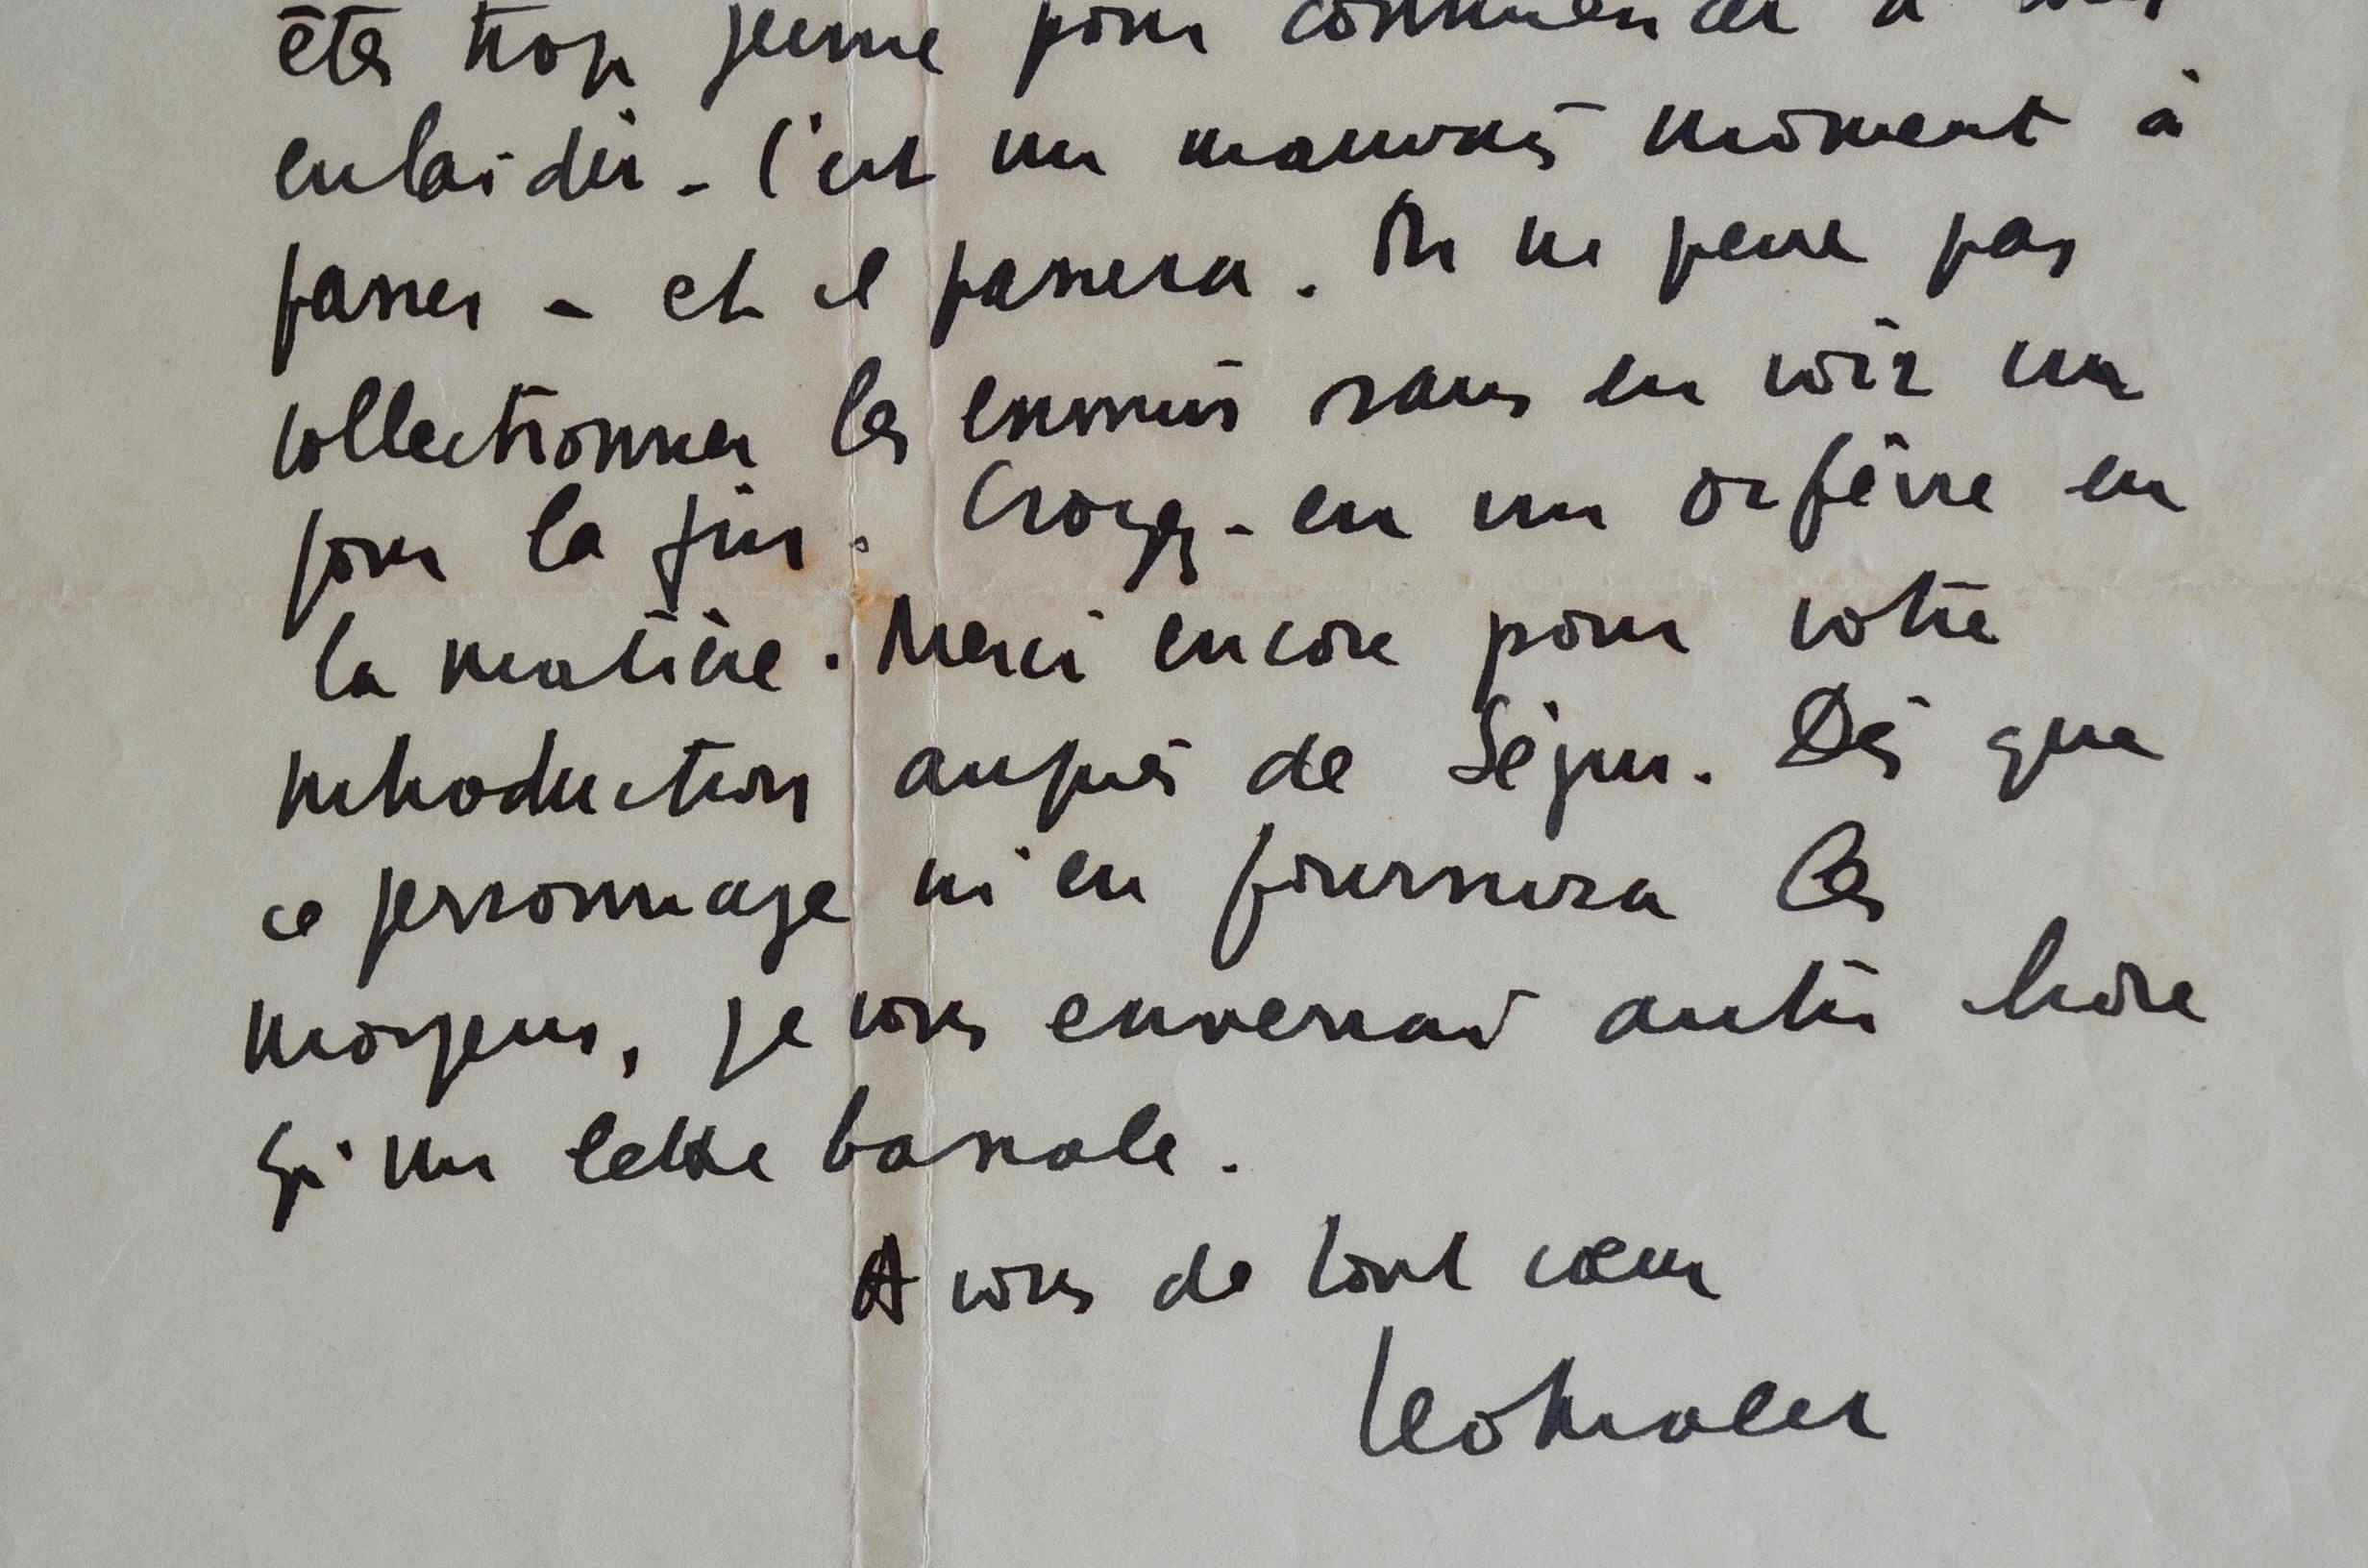 êtes trop jeune pour commencer à vous
enlaidir - C'est un mauvais moment à
passer - et il passera. On ne peut pas
collectionner les ennuis sans en voir un
jour la fin. Croyez-en un orfèvre en
la matière. Merci encore pour votre
introduction auprès de Séjour. Dès que
ce personnage m'en fournira les
moyens, je vous enverrai autre chose
qu'une lettre banale.
A vous de tout coeur
Leo Malet